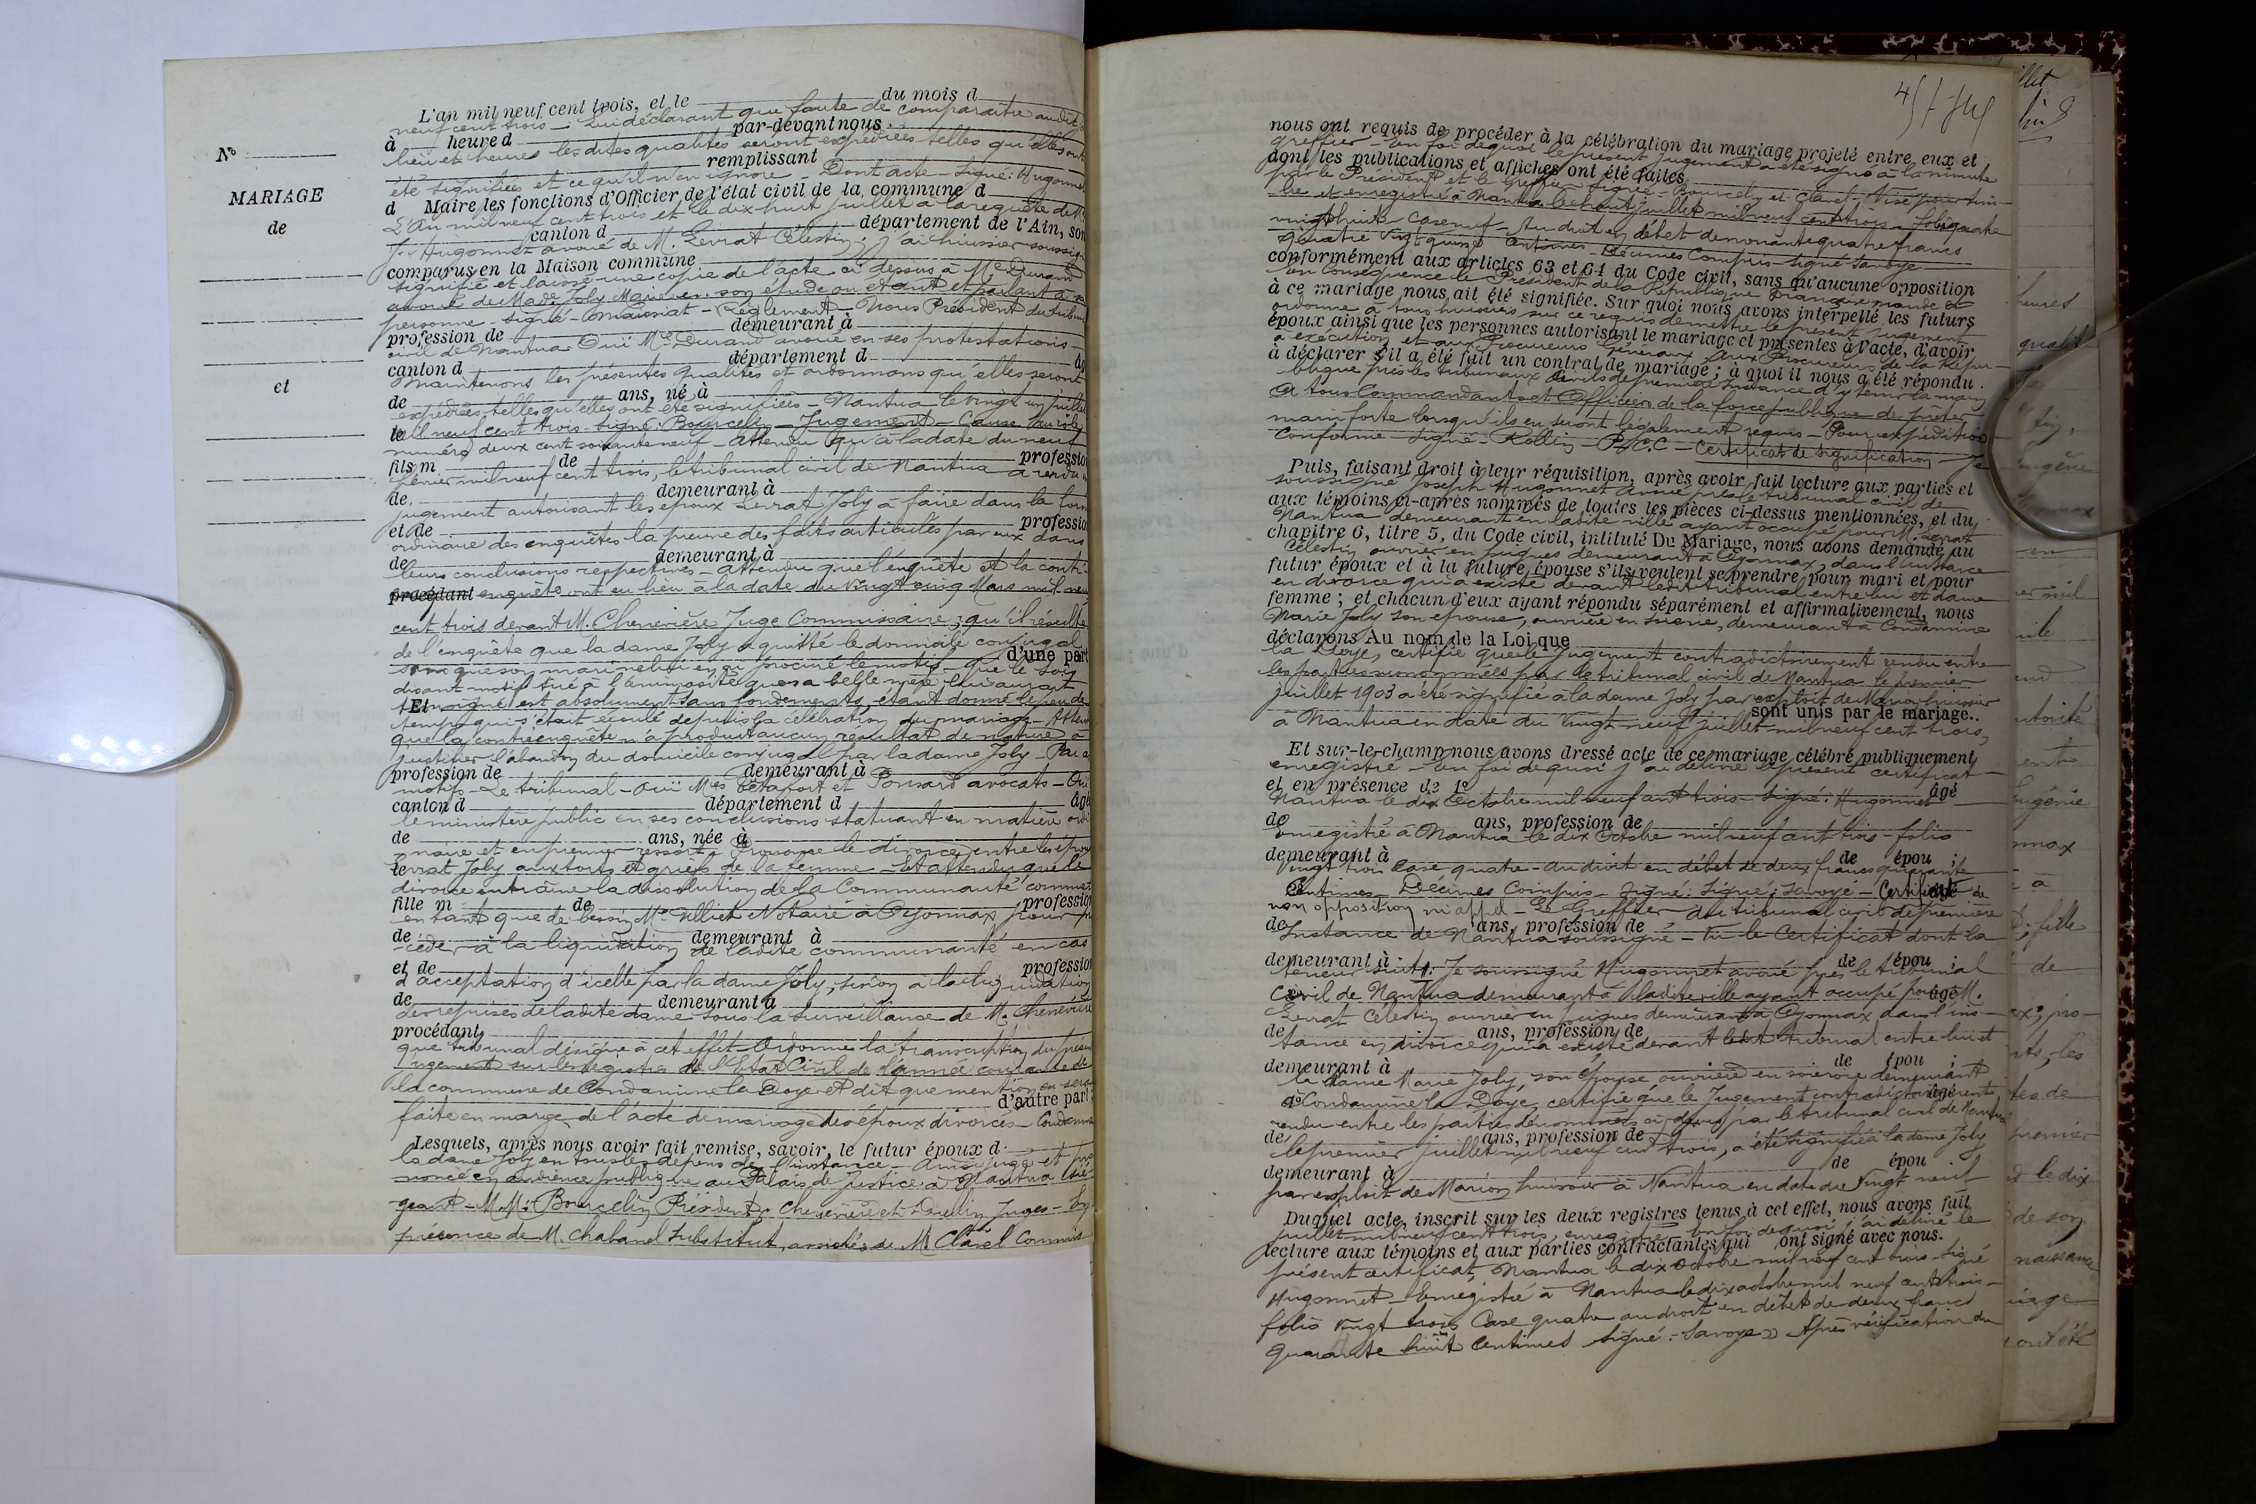 L'an mil neuf cent trois, et le du mois d
neuf cent trois — lui déclarant que faute de comparaître audit
à heure d par-devant nous
lieu et heures les dites qualités seront expédiées telles qu'elles ont
Nº
remplissant
été signifiées et ce qu'il n'en ignore — Dont acte — Signé: Hugonnet
MARIAGE
d Maire les fonctions d'Officier de l'état civil de la commune d
L'An mil neuf cent trois et le dix huit juillet à la requête de Me
de
canton d département de l'Ain, son
J. Hugonnet avoué de M. Levrat Célestin, j'ai huissier soussigné
comparus en la Maison commune
signifié et laissé une copie de l'acte ci dessus à Me Durand
avoué de Made Joly Marie en son étude ou étant et parlant à sa
personne — signé — Règlement — Nous Président du tribunal
profession de demeurant à
civil de Nantua Ouï Me Durand avoué en ses protestations
canton d département d âgé
Maintenons les présentes qualités et ordonnons qu'elles seront
et
de ans, né à
expédiées telles qu'elles ont été signifiées — Nantua le vingt un juillet
le mil neuf cent trois — signé: Bourcelin — Jugement — Cause au rôle
numéro deux cent soixante neuf — Attendu qu'à la date du neuf
fils m de profession
février mil neuf cent trois, le tribunal civil de Nantua a rendu un
de demeurant à
jugement autorisant les époux Levrat Joly à faire dans la forme
et de profession
ordinaire des enquêtes la preuve des faits articulés par eux dans
de demeurant à
leurs conclusions respectives — Attendu que l'enquête et la contre
procédant enquête ont eu lieu à la date du vingt cinq Mars mil neuf
cent trois devant M. Chenevière Juge Commissaire; qu'il résulte
de l'enquête que la dame Joly a quitté le domicile conjugal
d'une part
sans que son mari ne lui en ai procuré le motif — que le soi
disant motif tiré à l'animosité que sa belle mère lui aurait
Et
témoigné est absolument sans fondements, étant donné le peu de
temps qui s'était écoulé depuis la célébration du mariage — Attendu
que la contre enquête n'a produit aucun résultat de nature à
justifier l'abandon du domicile conjugal par la dame Joly — Par ces
profession de demeurant à
motifs — Le tribunal — Ouï Mes et Ponsard avocats — Ouï
canton d département d âgé
le ministère public en ses conclusions statuant en matière ordi
de ans, née à
naire et en premier ressort — Prononce le divorce entre les époux
Levrat Joly aux torts et griefs de la femme — Et attendu que le
divorce entraîne la dissolution de la Communauté commet
fille m de profession
en tant que de besoin Me Notaire à Oyonnax pour pro
de demeurant à
céder à la liquidation de ladite communauté en cas
et de profession
d'acceptation d'icelle par la dame Joly, sinon à la liquidation
de demeurant à
des reprises de ladite dame sous la surveillance de M. Chenevière
procédant
que tribunal désigne à cet effet — Ordonne la transcription du présent
jugement sur les registres de l'Etat Civil de l'année courante de
la commune de Condamine la Doye et dit que mention en sera
d'autre part;
faite en marge de l'acte de mariage des époux divorcés — Condamne
Lesquels, après nous avoir fait remise, savoir, le futur époux d
la dame Joly en tous les dépens de l'instance — Ainsi jugé et pro
noncé en audience publique au Palais de justice à Nantua sié
geant — M.M: Bourcelin Président, Chenevière et Juges — En
présence de M. Chabanel Substitut, assistés de M. Clavel Commis
nous ont requis de procéder à la célébration du mariage projeté entre eux et
greffier — En foi de quoi le présent jugement a été signé à la minute
dont les publications et affiches ont été faites
par le Président et le greffier — signé — Bourcelin et Clavel — Visé pour tim—
bre et enregistré à Nantua le huit juillet mil neuf cent trois — folio quatre
vingt huit — Case neuf — Au droit en débet de nonante quatre francs
quatre vingt quinze centimes — Décimes Compris — signé Savoye
conformément aux articles 63 et 64 du Code civil, sans qu'aucune opposition
En conséquence le Président de la République Française mande et
à ce mariage nous ait été signifiée. Sur quoi nous avons interpellé les futurs
ordonne à tous huissiers sur ce requis de mettre le présent jugement
époux ainsi que les personnes autorisant le mariage et présentes à l'acte, d'avoir
à exécution et aux Procureurs Généraux aux Procureurs de la Répu—
à déclarer s'il a été fait un contrat de mariage; à quoi il nous a été répondu.
blique près les tribunaux civils de première Instance d'y tenir la main
A tous Commandants et Officiers de la force publique de prêter
main forte lorsqu'ils en seront légalement requis — Pour expédition
Conforme — signé — Rollin — P.C.C — Certificat de signification — Je
Puis, faisant droit à leur réquisition, après avoir fait lecture aux parties et
soussigné Joseph Hugonnet avoué près le tribunal civil de
aux témoins ci-après nommés de toutes les pièces ci-dessus mentionnées, et du
Nantua demeurant en ladite ville ayant occupé pour M. Levrat
chapitre 6, titre 5, du Code civil, intitulé Du Mariage, nous avons demandé au
Célestin ouvrier en peignes demeurant à Oyonnax, dans l'instance
futur époux et à la future épouse s'ils veulent se prendre pour mari et pour
en divorce qui a existé devant ledit tribunal entre lui et dame
femme; et chacun d'eux ayant répondu séparément et affirmativement, nous
Marie Joly son épouse, ouvrière en soierie, demeurant à Condamine
déclarons Au nom de la Loi que
la Doye, certifie que le Jugement contradictoirement rendu entre
les parties susnommées par le tribunal civil de Nantua le premier
juillet 1903 a été signifié à la dame Joly par exploit de Marion huissier
sont unis par le mariage..
à Nantua en date du Vingt-neuf juillet mil neuf cent trois,
Et sur-le-champ nous avons dressé acte de ce mariage célébré publiquement
enregistré — En foi de quoi j'ai délivré le présent certificat
et en présence de 1º âgé
Nantua le dix Octobre mil neuf cent trois — Signé: Hugonnet
de ans, profession de
Enregistré à Nantua le dix Octobre mil neuf cent trois — folio
demeurant à de épou ;
Vingt trois Case quatre — Au droit en débet de deux francs quarante
Centimes — Décimes Compris — Signé: Signé: Savoye — Certificat de
non opposition ni appel — Le Greffier du tribunal civil de première
de ans, profession de
Instance de Nantua soussigné — Vu le Certificat dont la
demeurant à de épou ;
teneur suit: Je soussigné Hugonnet avoué près le tribunal
Civil de Nantua demeurant à ladite ville ayant occupé pour M.
âgé
Levrat Célestin ouvrier en peignes demeurant à Oyonnax dans l'ins—
de ans, profession de
tance en divorce qui a existé devant ledit tribunal entre lui et
demeurant à de épou ;
la dame Marie Joly, son épouse, ouvrière en soierie demeurant
4º âgé
Condamine la Doye, certifie que le Jugement contradictoirement
rendu entre les parties dénommées ci dessus par le tribunal civil de Nantua
de ans, profession de
le premier juillet mil neuf cent trois, a été signifié à la dame Joly
demeurant à de épou
par exploit de Marion huissier à Nantua en date du Vingt neuf
Duquel acte, inscrit sur les deux registres tenus à cet effet, nous avons fait
juillet mil neuf cent trois, enregistré — En foi de quoi j'ai délivré le
lecture aux témoins et aux parties contractantes qui ont signé avec nous.
présent certificat, Nantua le dix Octobre mil neuf cent trois — Signé
Hugonnet — Enregistré à Nantua le dix octobre mil neuf cent trois —
folio vingt trois Case quatre au droit en débet de deux francs
quarante huit Centimes signé: Savoye » Après vérification du